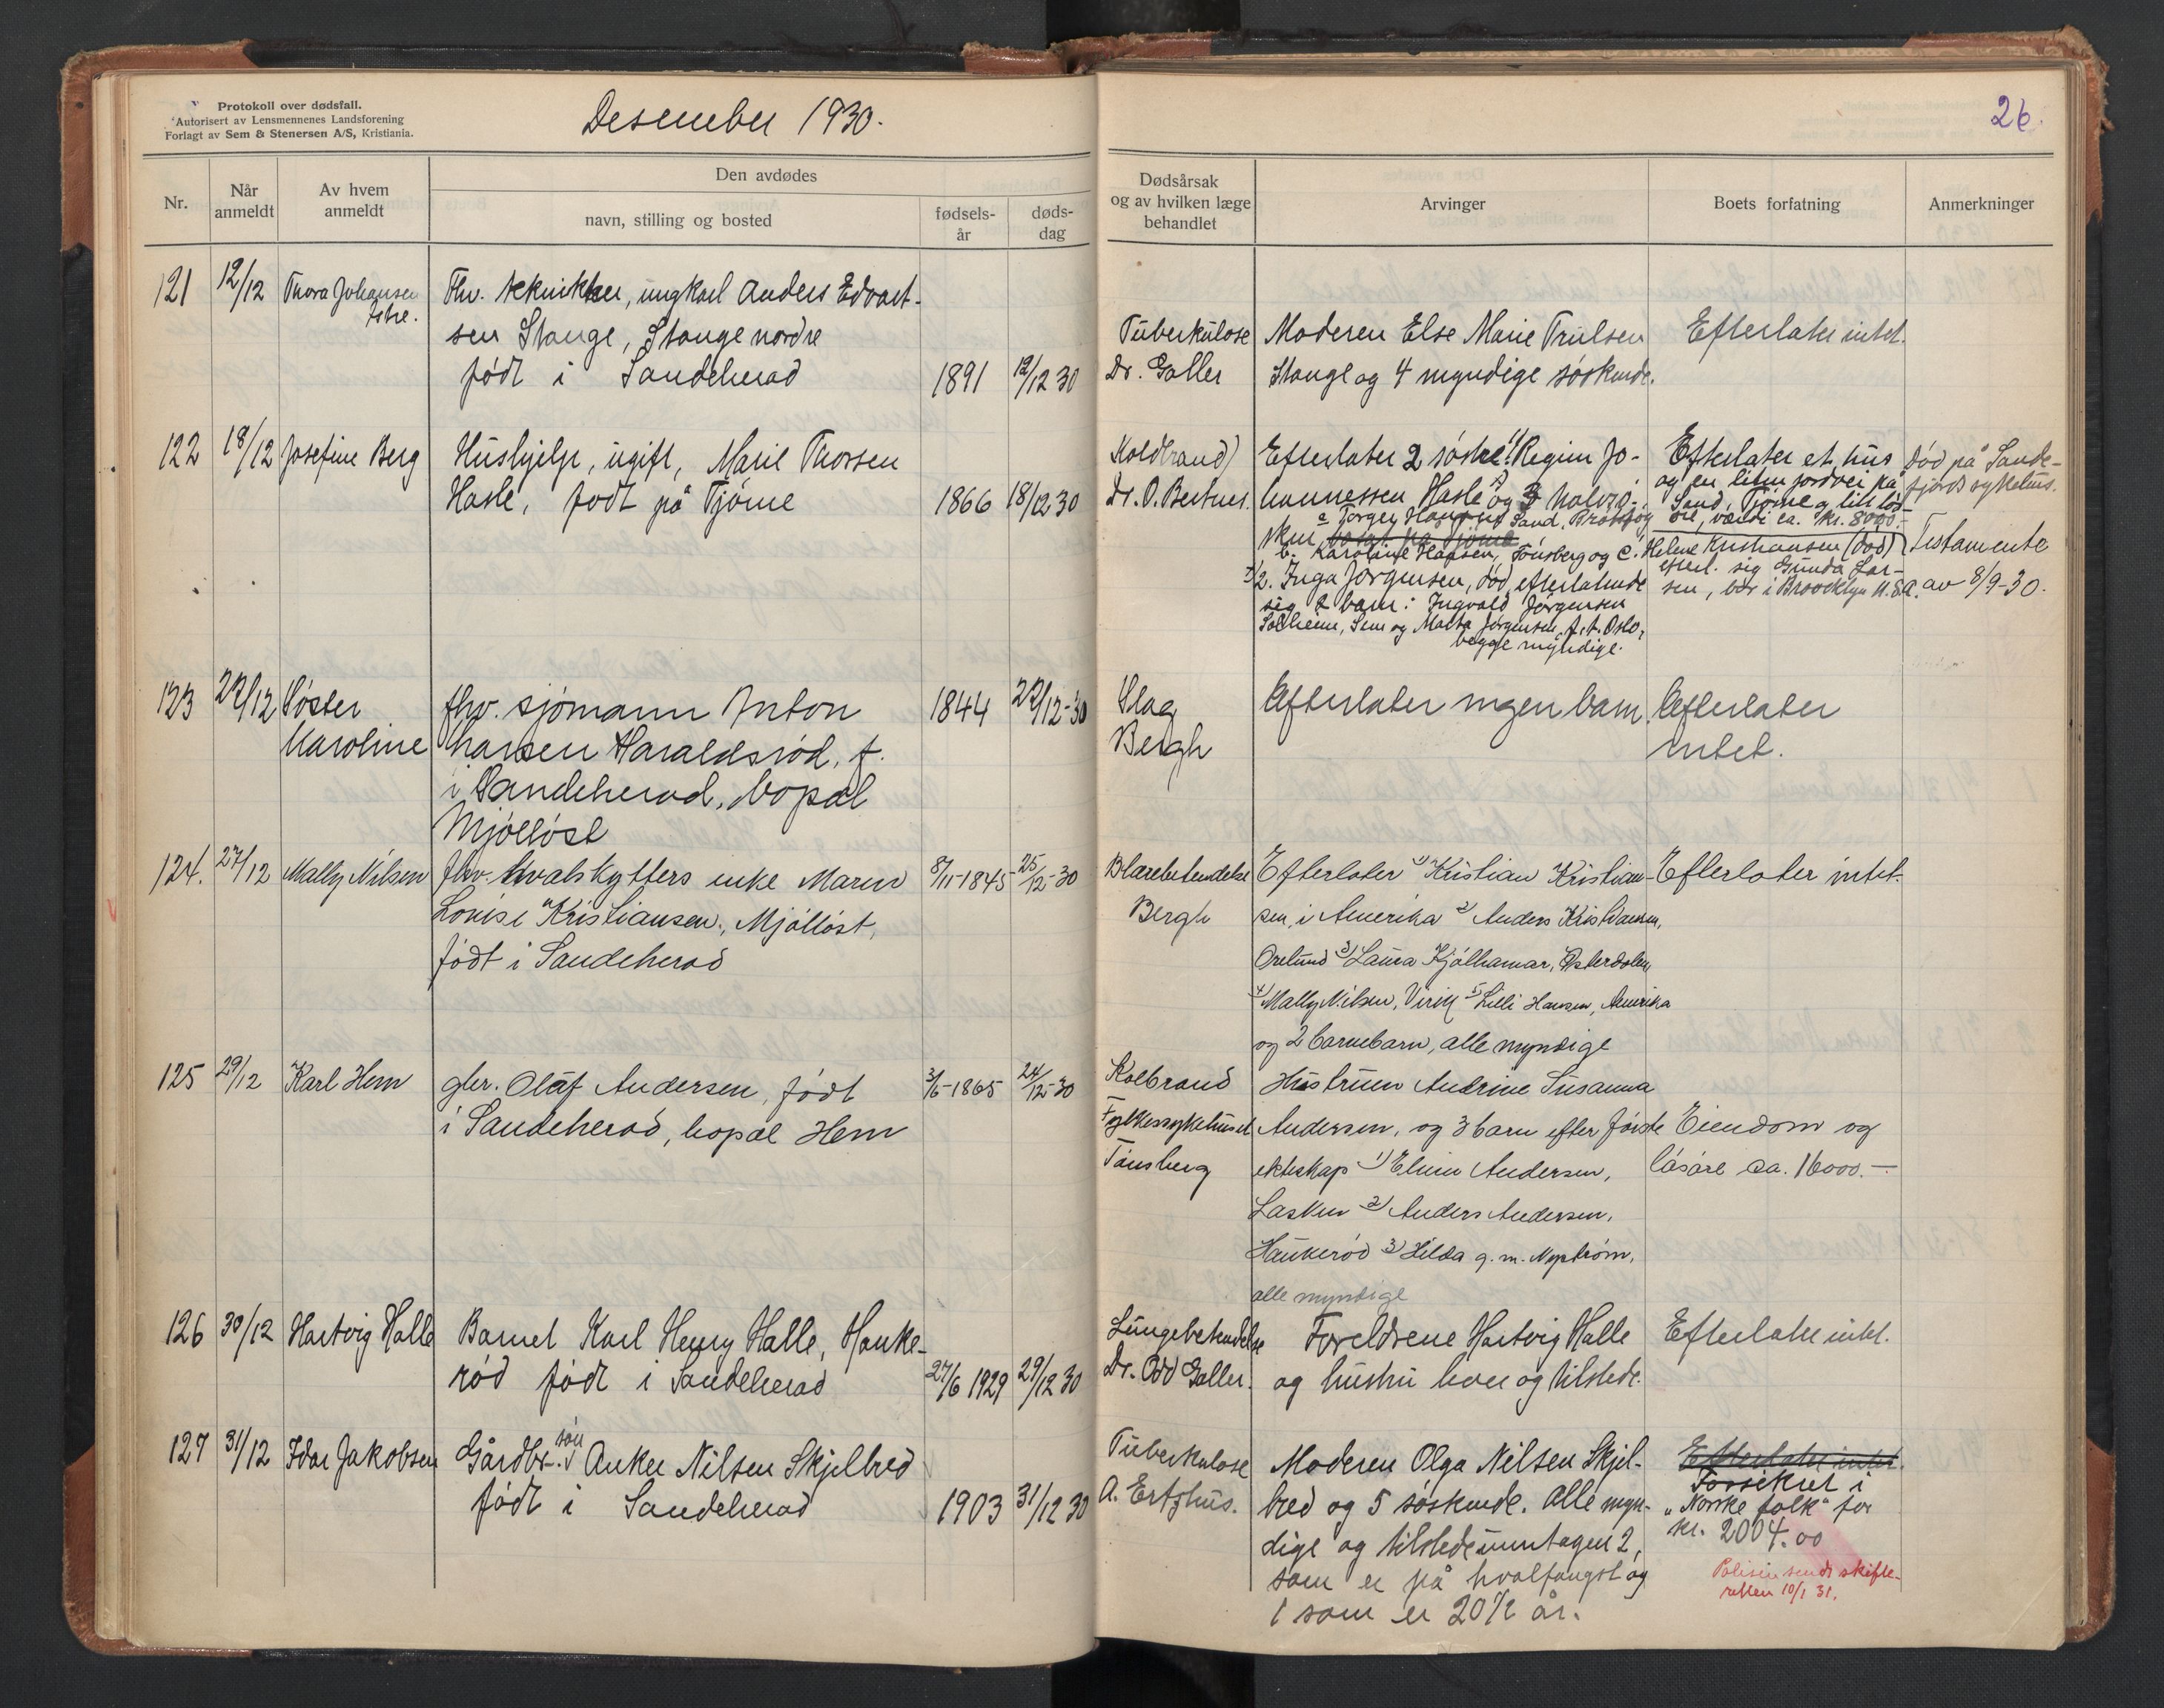 Protokoll over dødsfall.
Autorisert av Lensmennenes Landsforening
Forlagt av Sem & Stenersen A/S, Kristiania.
Desember 1930.
26.
Nr.
Når anmeldt
Av hvem anmeldt
Den avdødes
navn, stilling og bosted
fødsels-
år
døds-
dag
Dødsårsak
og av hvilken læge
behandlet
Arvinger
Boets forfatning
Anmerkninger
121 12/12 Thora Johansen
Fhv. tekniker, ungkarl Anders Edvart-
sen Stange, Stange nordre
født i Sandeherad 1891 12/12 30
Tuberkulose
Dr. Galler
Moderen Else Marie Trulsen
Stange og 4 myndige søskende.
Efterlater intet.
122 18/12 Josefine Berg
Hushjelp, ugift, Marie Thorsen
Hasle, født på Tjøme 1866 18/12 30
Koldbrand)
Dr. O. Bentnes.
Efterlater 2 søstre: 1/ Reginn Jo-
hannessen Hasle og 3 halvsø-
sken bosat på Tjøme
a Jørgen Hansen Sand,
b. Karoline Hansen, Tønsberg og c. Helene Kristiansen (død)
2. Inga Jørgensen, død, efterlatende
sig 2 barn: Ingvald Jørgensen
Solheim, Sem og Marta Jørgensen, f. t. Oslo,
begge myndige.
Efterlater et hus
og en liten jordvei på
Sand, Tjøme og litt løs-
øre, værdi ca. kr. 8000.-
efterl. sig Gunda Lar-
sen, bor i Broocklyn U.S.A.
Død på Sande-
fjords sykehus.
Testamente
av 8/9-30.
123 22/12 Søster
Karoline
fhv. sjømann Anton
Hansen Haraldsrød, f.
i Sandeherad, bopæl
Mjølløst
1844 22/12-30
Slag
Bergh
Efterlater ingen barn.
Efterlater
intet.
124. 27/12 Mally Nilsen
fhv. hvalskytters enke Maren
Lovise Kristiansen, Mjølløst,
født i Sandeherad
8/11-1845 25/12-30
Blærebetendelse
Bergh
Efterlater 1) Kristian Kristian-
sen, i Amerika 2) Anders Kristiansen,
Orelund 3) Laura Kjølhamar, Østerdolen,
4) Mally Nilsen, Virik 5) Lilli Hansen, Amerika
og 2 barnebarn, alle myndige
Efterlater intet.
125 29/12 Karl Hem
gbr. Olaf Andersen, født
i Sandeherad, bopæl Hem
3/6-1865 24/12-30
Kolbrand
Fylkessykehuset
Tønsberg
Hustruen Andrine Susanna
Andersen, og 3 barn efter første
ekteskap 1) Elum Andersen,
Lasken 2) Anders Andersen,
Haukerød 3) Hilda g. m. Nystrøm,
alle myndige
Eiendom og
løsøre ca. 16000.-
126 30/12 Hartvig Halle
Barnet Karl Henry Halle, Hauke-
rød født i Sandeherad
27/6 1929 29/12 30
Lungebetendelse
Dr. Odd Galler.
Foreldrene Hartvig Halle
og hustru lever og tilstede.
Efterlater intet.
127 31/12 Idar Jakobsen
Gårdbr. søn Anker Nilsen Skjelbred
født i Sandeherad
1903 31/12 30
Tuberkulose
A. Ertzhus.
Moderen Olga Nilsen Skjel-
bred og 5 søskende. Alle myn-
dige og tilstede unntagen 2,
som er på hvalfangst og
1 som er 20 1/2 år.
Efterlater intet.
Forsikret i
"Norske folk" for
kr. 2004.00
Polisen sendt skifte-
retten 10/1 31.